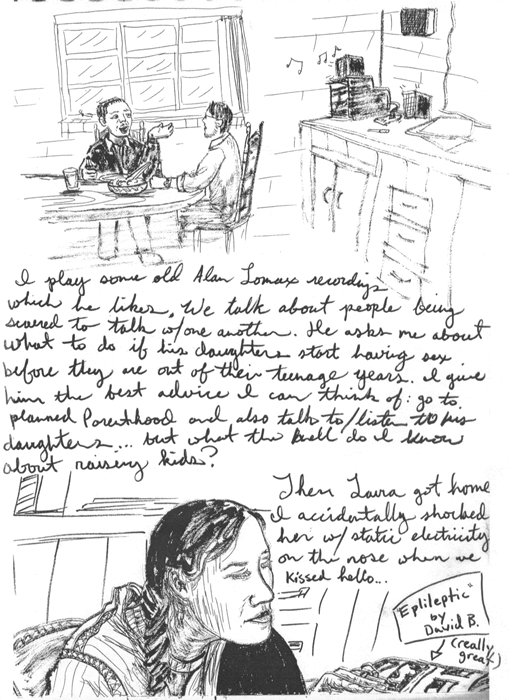 I play some old Alan Lomax recordings
which he likes. We talk about people being
scared to talk w/one another. He asks me about
what to do if his daughters start having sex
before they are out of their teenage years. I give
him the best advice I can think of: go to
planned Parenthood and also talk to/listen to his
daughters... but what the hell do I know
about raising kids?
Then Laura got home
I accidentally shocked
her w/ static electricity
on the nose when we
kissed hello...
"Eplileptic"
by
David B.
(really
great)